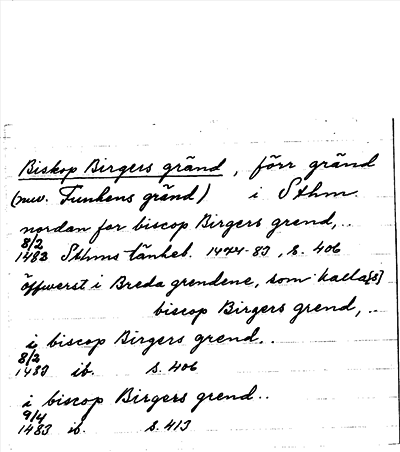 Biskop Birgers gränd, förr gränd
(nuv. Funkens gränd) i Sthm.
nordan for biscop Birgers grend,..
8/2
1483 Sthms tänkeb. 1474-83, s. 406
öffwerst i Breda grendene, som kalla[s]
biscop Birgers grend,..
i biscop Birgers grend..
8/2
1483 ib. s. 406
i biscop Birgers grend..
9/4
1483 ib. s. 413